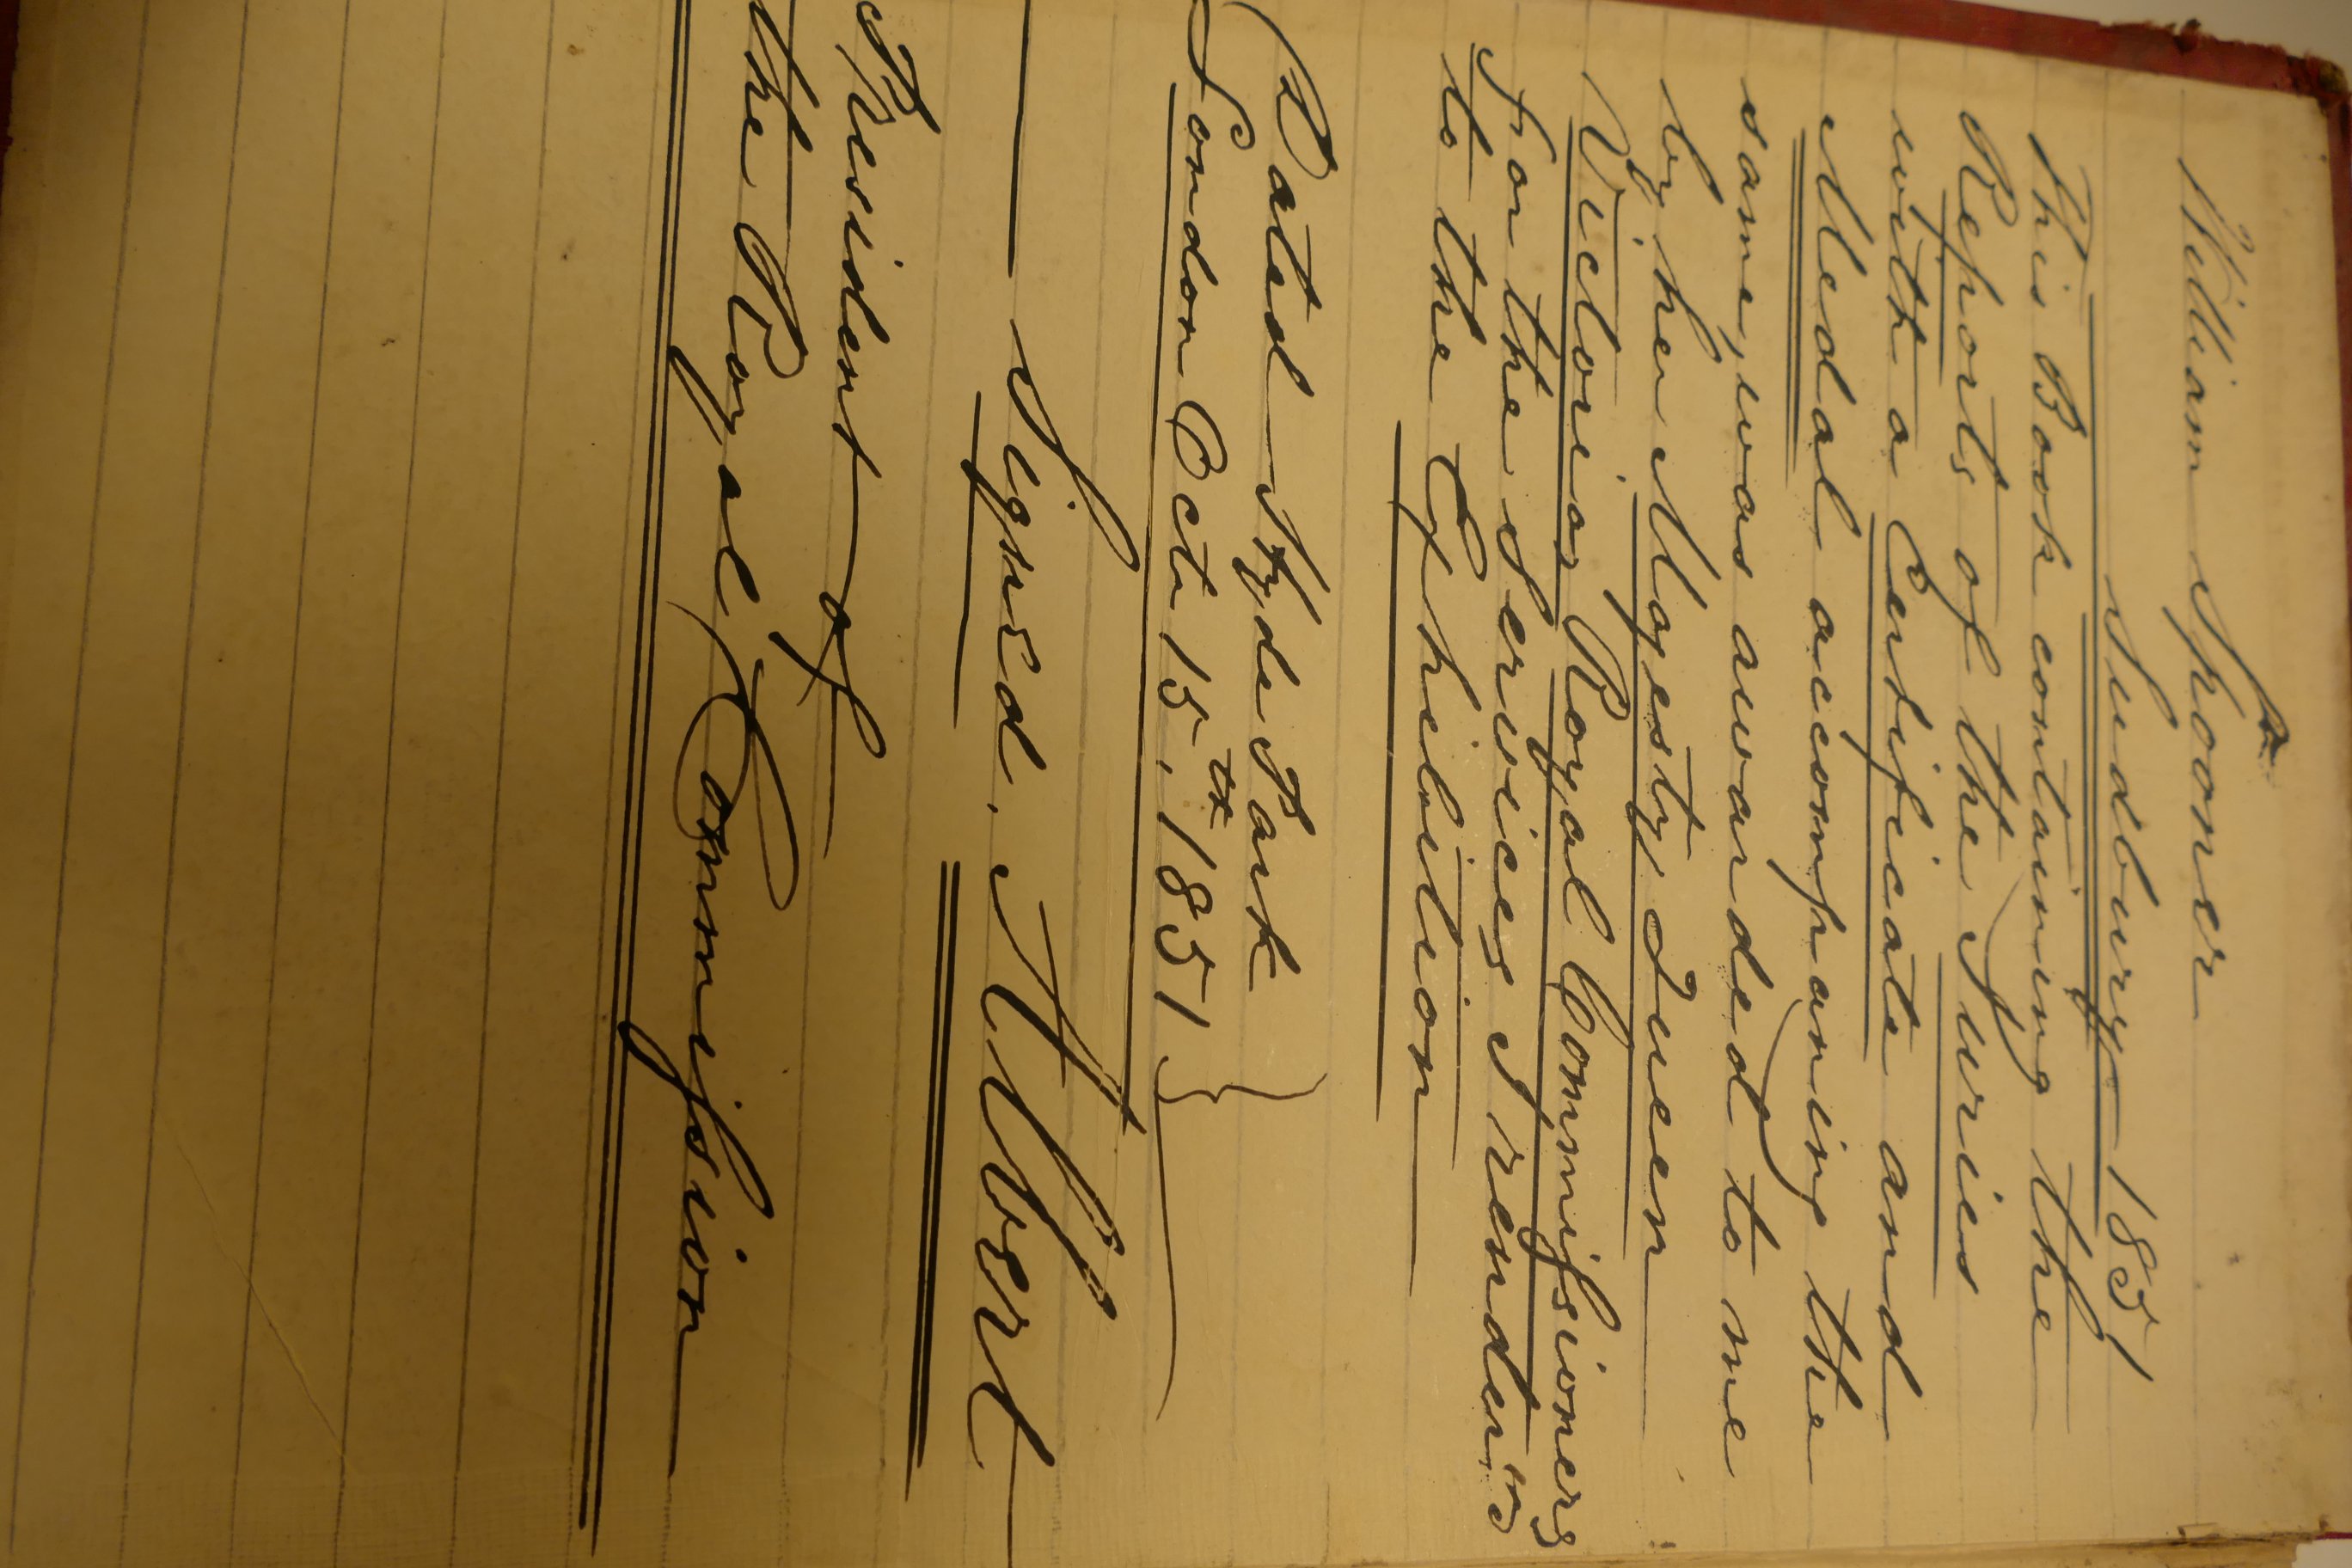 William Spooner
Sudbury 1851
This Book containing the
Reports of the Juries
with a Certificate and
Medal accompaning the
same, was awarded to me
by her Majesty Queen
Victorias Royal Commissioners
for the Services I rendered
to the Exhibition
Dated Hyde Park
London Oct 15th. 1851
Signed. Albert
President of
the Royal Commission